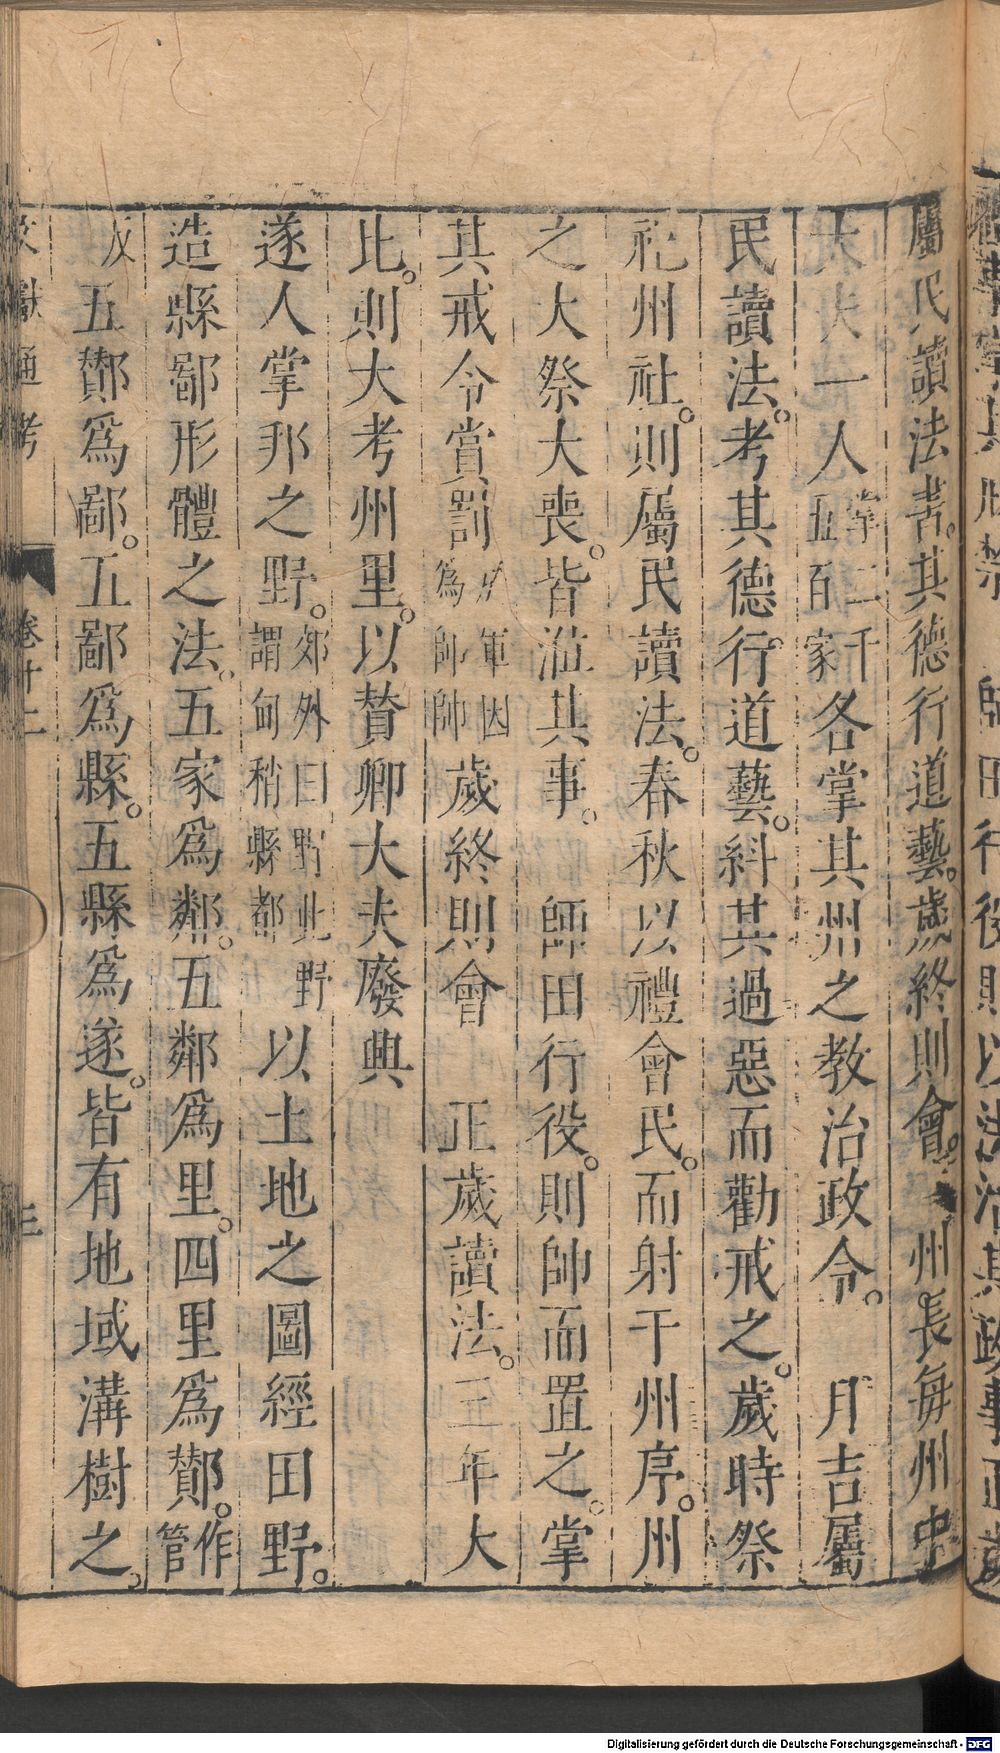 屬民讀法書其德行道藝歲終則會　州長每州中
大夫一人掌二千五百家各掌其州之教治政令　月吉屬
民讀法考其德行道藝糾其過惡而勸戒之歲時祭
祀州社則屬民讀法春秋以禮會民而射于州序州
之大祭大喪皆涖其事　師田行役則帥而置之掌
其戒令賞罰為師帥歲終則會　正歲讀法三年大
比則大考州里以贊鄉大夫廢興
遂人掌邦之野郊外曰野此野謂甸稍縣都以土地之圖經田野
造縣鄙形體之法五家為鄰五鄰為里四里為酇作管
反五酇為鄙五鄙為縣五縣為遂皆有地域溝樹之
文獻通考　卷十二　三
Digitalisierung gefördert durch die Deutsche Forschungsgemeinschaft - DFG